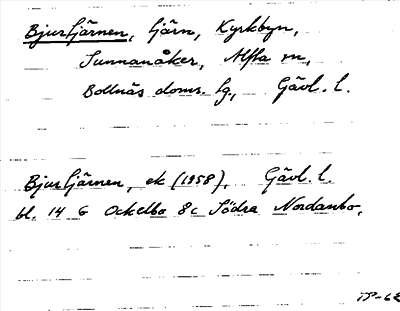 Bjurtjärnen, tjärn, Kyrkbyn,
Sunnanåker, Alfta sn,
Bollnäs doms. lg, Gävl. l.
Bjurtjärnen, ek (1958), Gävl. l.
bl. 14 G Ockelbo 8c Södra Nordanbo.
TP-62